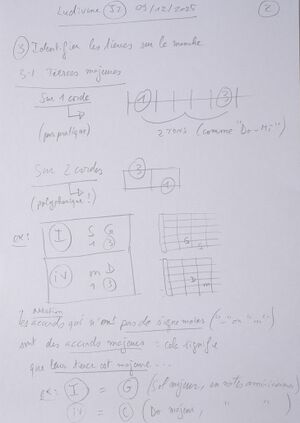 Ludivine (S7) 09/12/2025 (2)
(3) Identifier les tierces sur le manche
3.1 Tierces majeures
Sur 1 corde
1 3
(pas pratique)
2 tons (comme "Do-Mi")
Sur 2 cordes
3
(polyphonique !)
1
ex:
I S G
1 3
IV m D
1 3
G S
D m
notation
les accords qui n'ont pas de signe moins ("-" ou "m")
sont des accords majeurs : cela signifie
que leur tierce est majeure...
ex: I = G (Sol majeur, en notes américaines)
IV = C (Do majeur, " ")